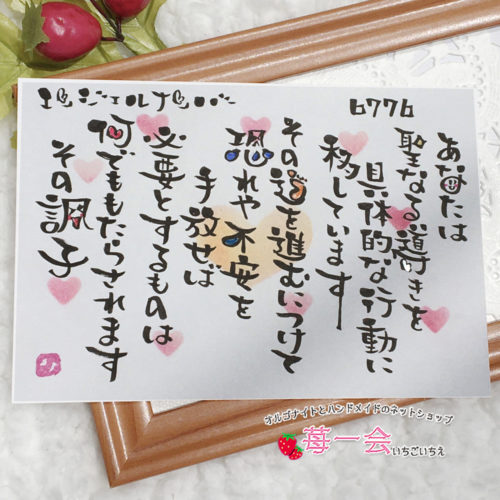 エンジェルナンバー 6776
あなたは
聖なる導きを
具体的な行動に
移しています
その道を進むにつけて
恐れや不安を
手放せば
必要とするものは
何でももたらされます
その調子
オルゴナイトとハンドメイドのネットショップ
苺一会いちごいちえ